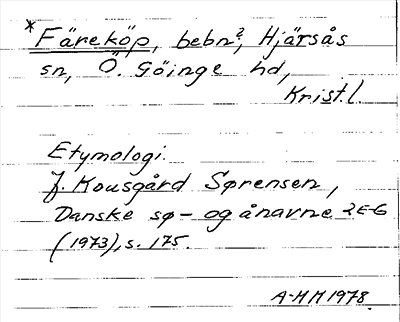 *Färeköp, bebn?, Hjärsås
sn, Ö. Göinge hd,
Krist. l.
Etymologi.
J. Kousgård Sørensen,
Danske sø- og ånavne 2 E-G
(1973), s. 175.
A-MM 1978